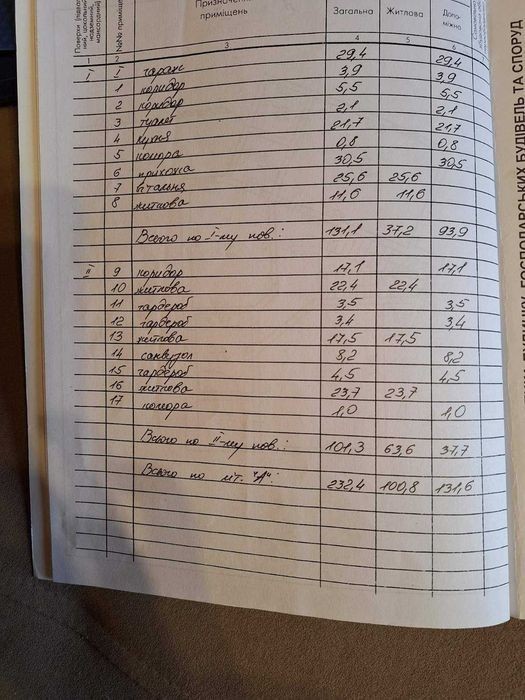 Поверхи (підвал-
ний, цокольний,
надземний,
мансардний)
№№ приміщень
Призначення
приміщень
Загальна
Житлова
Допо-
міжна
1 2 3 4 5 6
I I гараж 29,4 29,4
1 коридор 3,9 3,9
2 коридор 5,5 5,5
3 туалет 2,1 2,1
4 кухня 21,7 21,7
5 комора 0,8 0,8
6 прихожа 30,5 30,5
7 вітальня 25,6 25,6
8 житлова 11,6 11,6
Всього по I-му пов.: 131,1 37,2 93,9
II 9 коридор 17,1 17,1
10 житлова 22,4 22,4
11 гардероб 3,5 3,5
12 гардероб 3,4 3,4
13 житлова 17,5 17,5
14 санвузол 8,2 8,2
15 гардероб 4,5 4,5
16 житлова 23,7 23,7
17 комора 1,0 1,0
Всього по II-му пов.: 101,3 63,6 37,7
Всього по літ. "А": 232,4 100,8 131,6
ГОСПОДАРСЬКИХ БУДІВЕЛЬ ТА СПОРУД